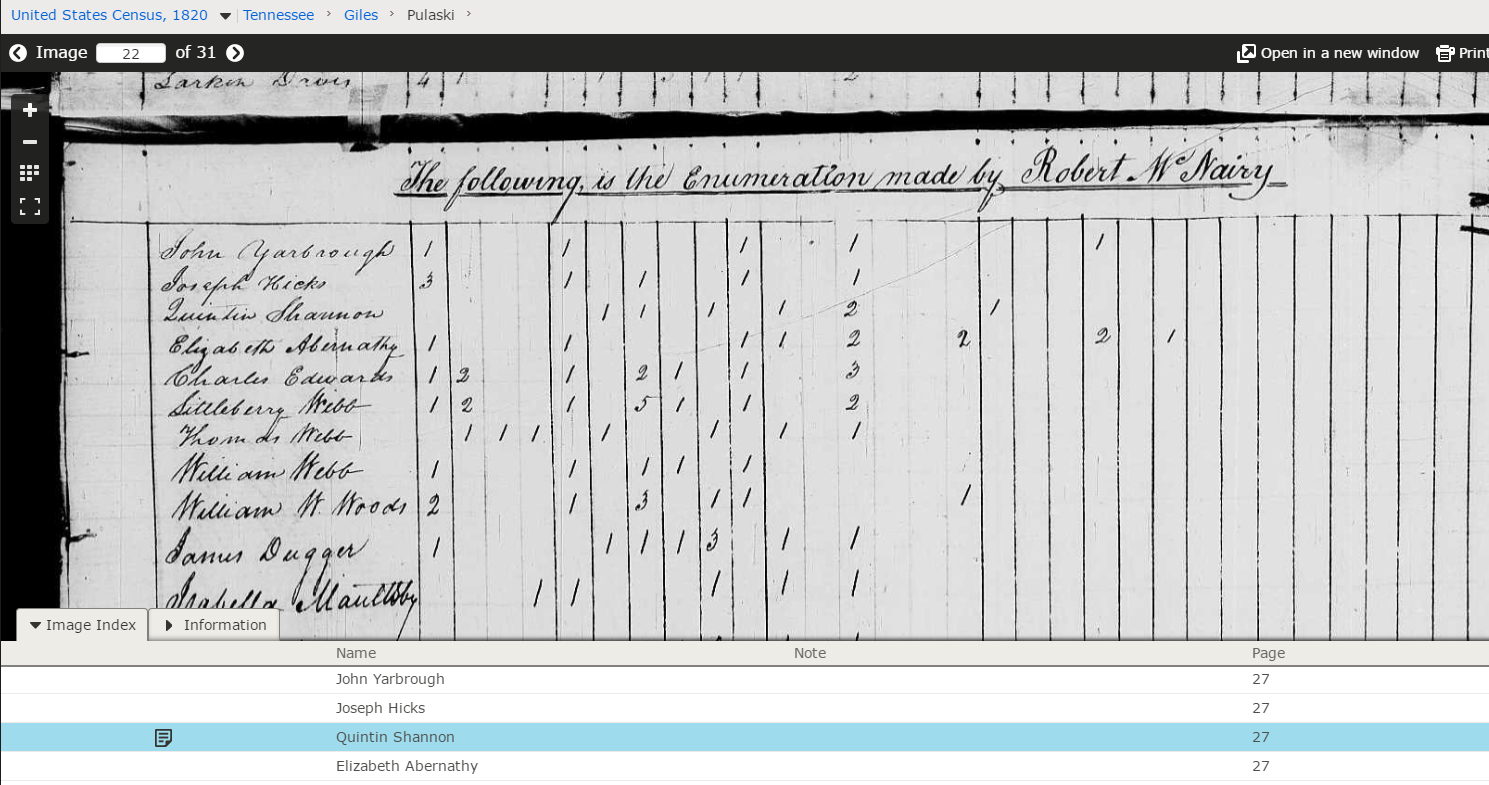 United States Census, 1820 Tennessee › Giles › Pulaski ›
Image 22 of 31 Open in a new window Print
Larkin Davis 4 1 1 3 1 1 2
The following, is the Enumeration made by Robert Mc Nairy
John Yarbrough 1 1 1 1 1
Joseph Hicks 3 1 1 1 1
Quintin Shannon 1 1 1 1 2 1
Elizabeth Abernathy 1 1 1 1 2 2 2 1
Charles Edwards 1 2 1 2 1 1 3
Littleberry Webb 1 2 1 5 1 1 2
Thomas Webb 1 1 1 1 1 1 1
William Webb 1 1 1 1 1
William W. Woods 2 1 3 1 1 1
James Dugger 1 1 1 1 3 1 1
Isabella Maultsby 1 1 1 1 1
Image Index Information
Name Note Page
John Yarbrough 27
Joseph Hicks 27
Quintin Shannon 27
Elizabeth Abernathy 27